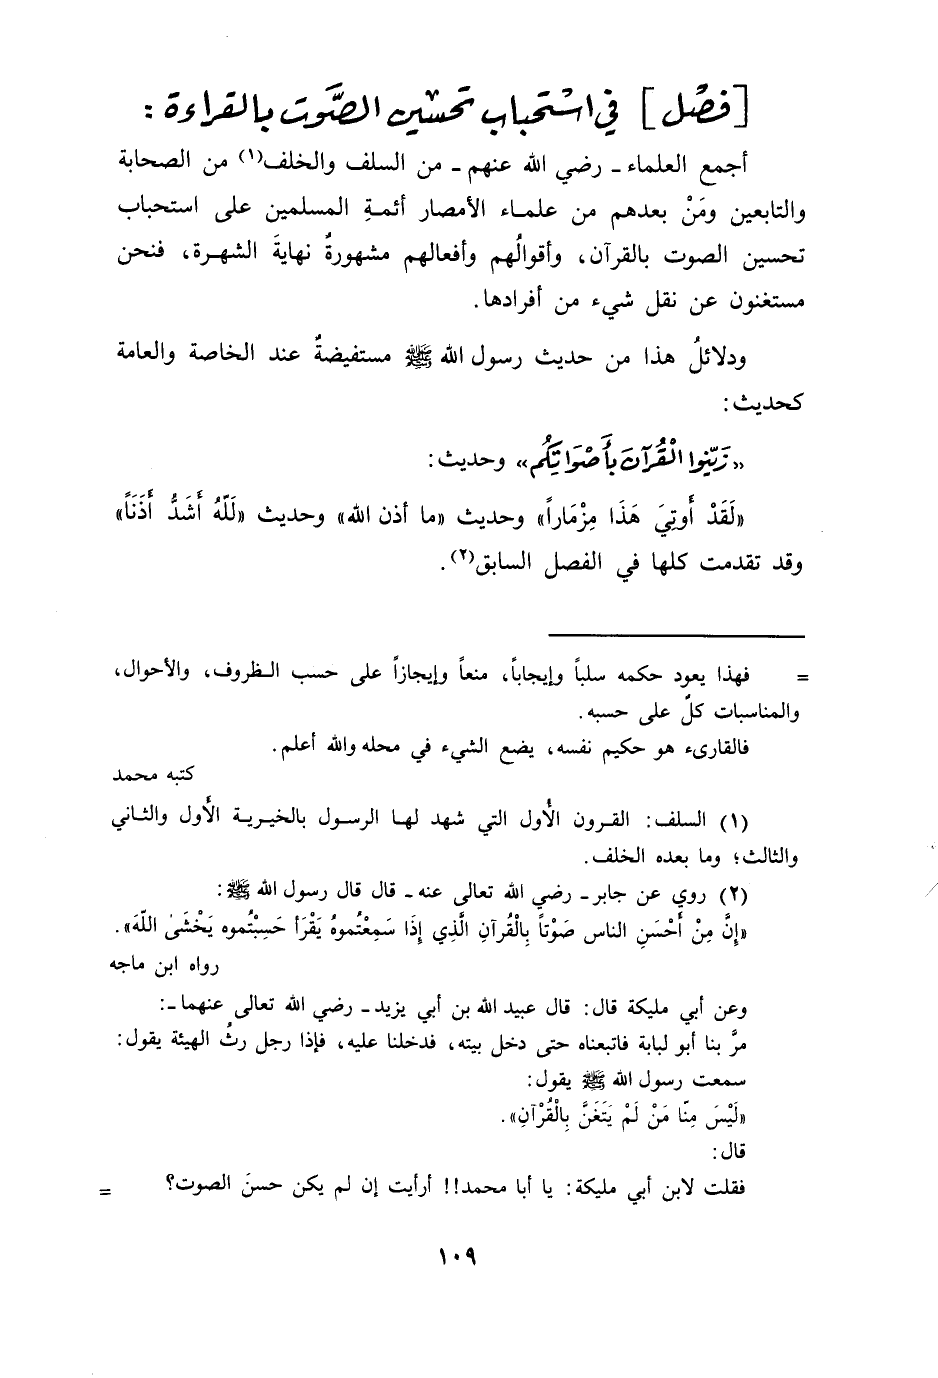 [فصْل] في استحباب تحسين الصّوت بالقراءة :
أجمع العلماء ـ رضي الله عنهم ـ من السلف والخلف(١) من الصحابة
والتابعين ومَنْ بعدهم من علماء الأمصار أئمةِ المسلمين على استحباب
تحسين الصوت بالقرآن، وأقوالُهم وأفعالهم مشهورةٌ نهايةَ الشهرة، فنحن
مستغنون عن نقل شيء من أفرادها.
ودلائلُ هذا من حديث رسول الله ﷺ مستفيضةٌ عند الخاصة والعامة
كحديث:
«زَيِّنوا الْقُرآنَ بأَصْوَاتِكُم» وحديث:
«لَقَدْ أُوتِيَ هَذَا مِزْمَاراً» وحديث «ما أذن الله» وحديث «لَلّهُ أَشَدُّ أَذَنَاً»
وقد تقدمت كلها في الفصل السابق(٢).
= فهذا يعود حكمه سلباً وإيجاباً، منعاً وإيجازاً على حسب الظروف، والأحوال،
والمناسبات كلّ على حسبه.
فالقارىء هو حكيم نفسه، يضع الشيء في محله والله أعلم.
كتبه محمد
(١) السلف: القرون الأُول التي شهد لها الرسول بالخيرية الأَول والثاني
والثالث؛ وما بعده الخلف.
(٢) روي عن جابر ـ رضي الله تعالى عنه ـ قال قال رسول الله ﷺ:
«إِنَّ مِنْ أَحْسَنِ الناس صَوْتاً بِالْقُرآنِ الَّذِي إِذَا سَمِعْتُموهُ يَقْرَأ حَسِبْتُموه يَخْشَىٰ اللهَ».
رواه ابن ماجه
وعن أبي مليكة قال: قال عبيد الله بن أبي يزيد ـ رضي الله تعالى عنهما ـ:
مرَّ بنا أبو لبابة فاتبعناه حتى دخل بيته، فدخلنا عليه، فإذا رجل رثُ الهيئة يقول:
سمعت رسول الله ﷺ يقول:
«لَيْسَ مِنّا مَنْ لَمْ يَتَغَنَّ بِالْقُرْآنِ».
قال:
فقلت لابن أبي مليكة: يا أبا محمد!! أرأيت إن لم يكن حسنَ الصوت؟ =
١٠٩